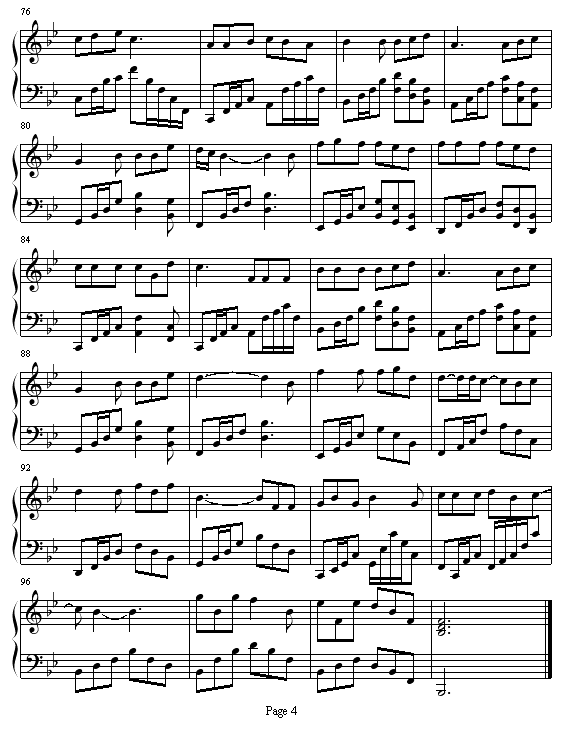 76
80
84
88
92
96
Page 4